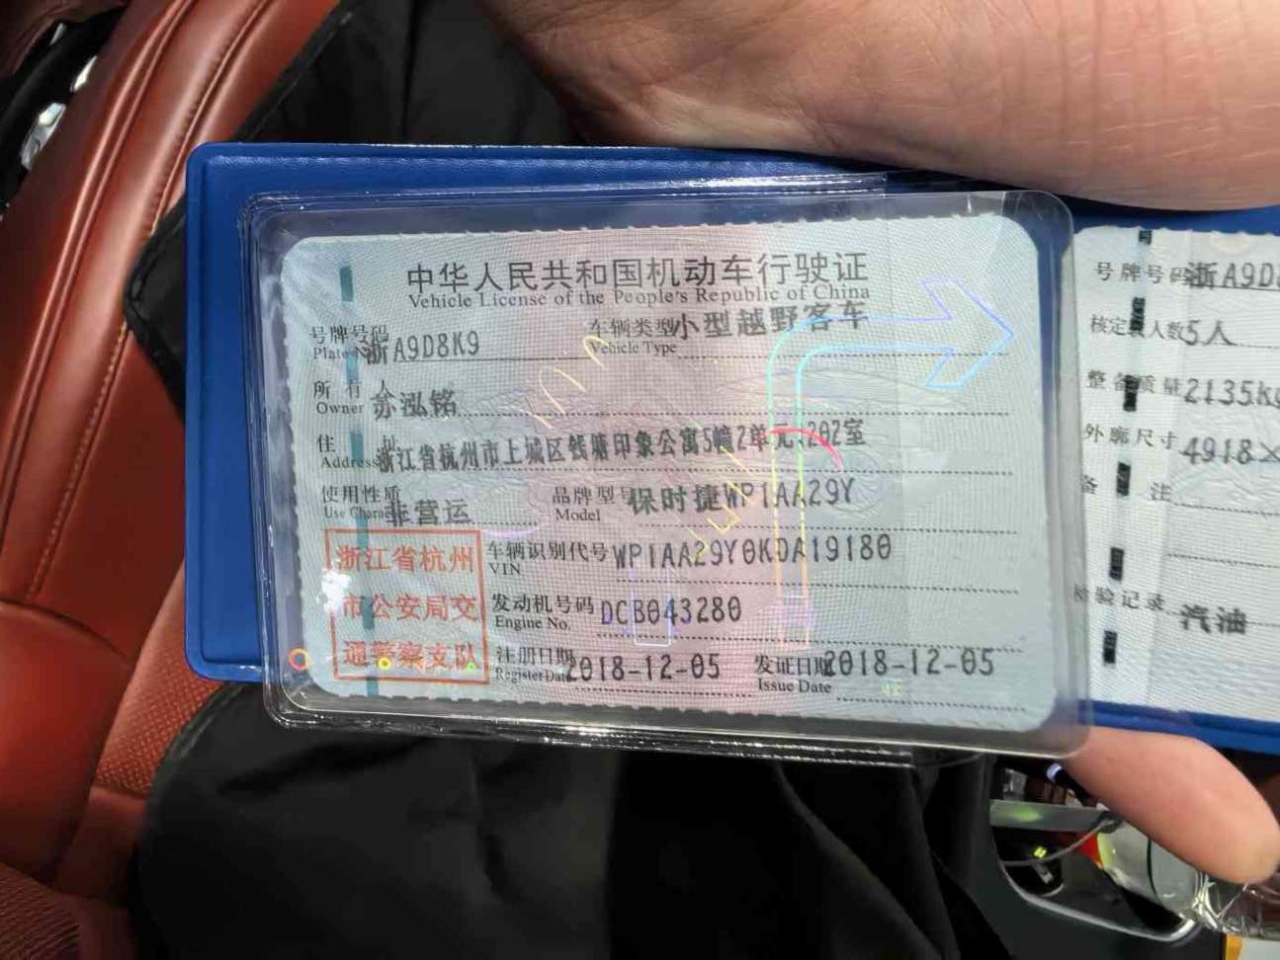 中华人民共和国机动车行驶证
Vehicle License of the People's Republic of China
号牌号码 浙A9D8K9 车辆类型 小型越野客车
Plate No. Vehicle Type
所有人 苏泓铭
Owner
住址 浙江省杭州市上城区钱塘印象公寓5幢2单元202室
Address
使用性质 非营运 品牌型号 保时捷WP1AA29Y
Use Character Model
浙江省杭州
市公安局交
通警察支队
车辆识别代号 WP1AA29Y0KDA19180
VIN
发动机号码 DCB043280
Engine No.
注册日期 2018-12-05 发证日期 2018-12-05
Register Date Issue Date
号牌号码 浙A9D8
核定载人数 5人
整备质量 2135kg
外廓尺寸 4918×
备注
检验记录 汽油